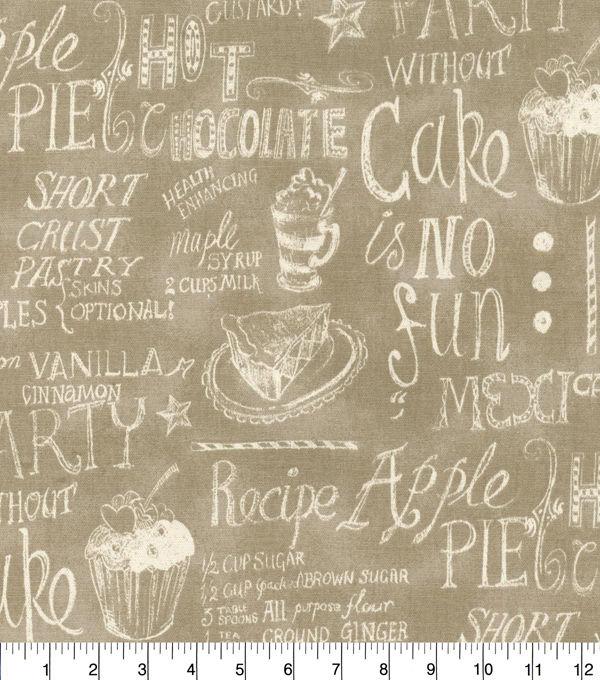 CUSTARD!
PARTY
HOT
CHOCOLATE
WITHOUT
Cake
is NO
fun
MEXICA
ple
PIE
SHORT
CRUST
PASTRY
SKINS
PLES { OPTIONAL!
HEALTH
ENHANCING
maple
SYRUP
2 CUPS MILK
on VANILLA
CINNAMON
ARTY
THOUT
ake
Recipe
1/2 CUP SUGAR
1/2 CUP (packed) BROWN SUGAR
3 TABLE SPOONS All purpose flour
1 TEA GROUND GINGER
Apple
PIE
H
C
SHORT
1 2 3 4 5 6 7 8 9 10 11 12